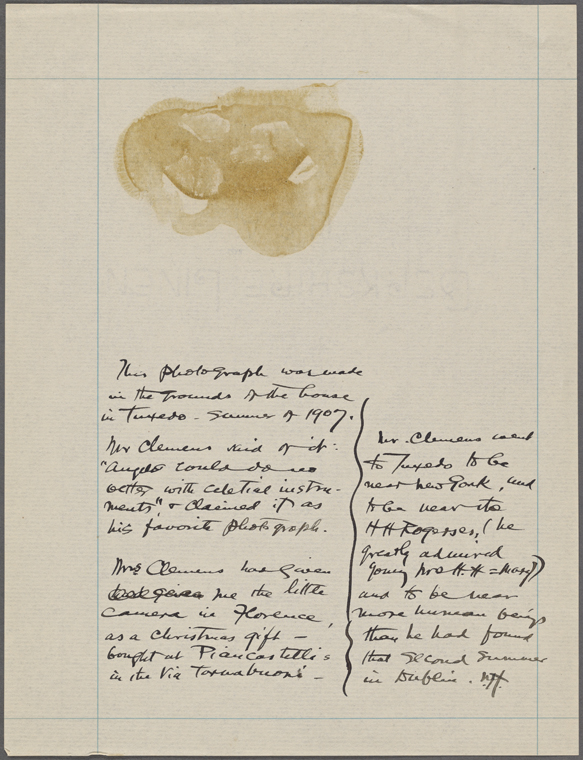 This photograph was made
in the grounds of the house
in Tuxedo - Summer of 1907.
Mr Clemens said of it:
"Angels could do no
better with celestial instru-
ments" & claimed it as
his favorite photograph.
Mrs Clemens had given
me the little
camera in Florence,
as a Christmas gift —
bought at Piancastelli's
in the Via Tornabuoni —
Mr. Clemens went
to Tuxedo to be
near New York, and
to be near the
HH Rogerses, (he
greatly admired
young Mrs H.H = Mary)
and to be near
more human beings
than he had found
that Second Summer
in Dublin.